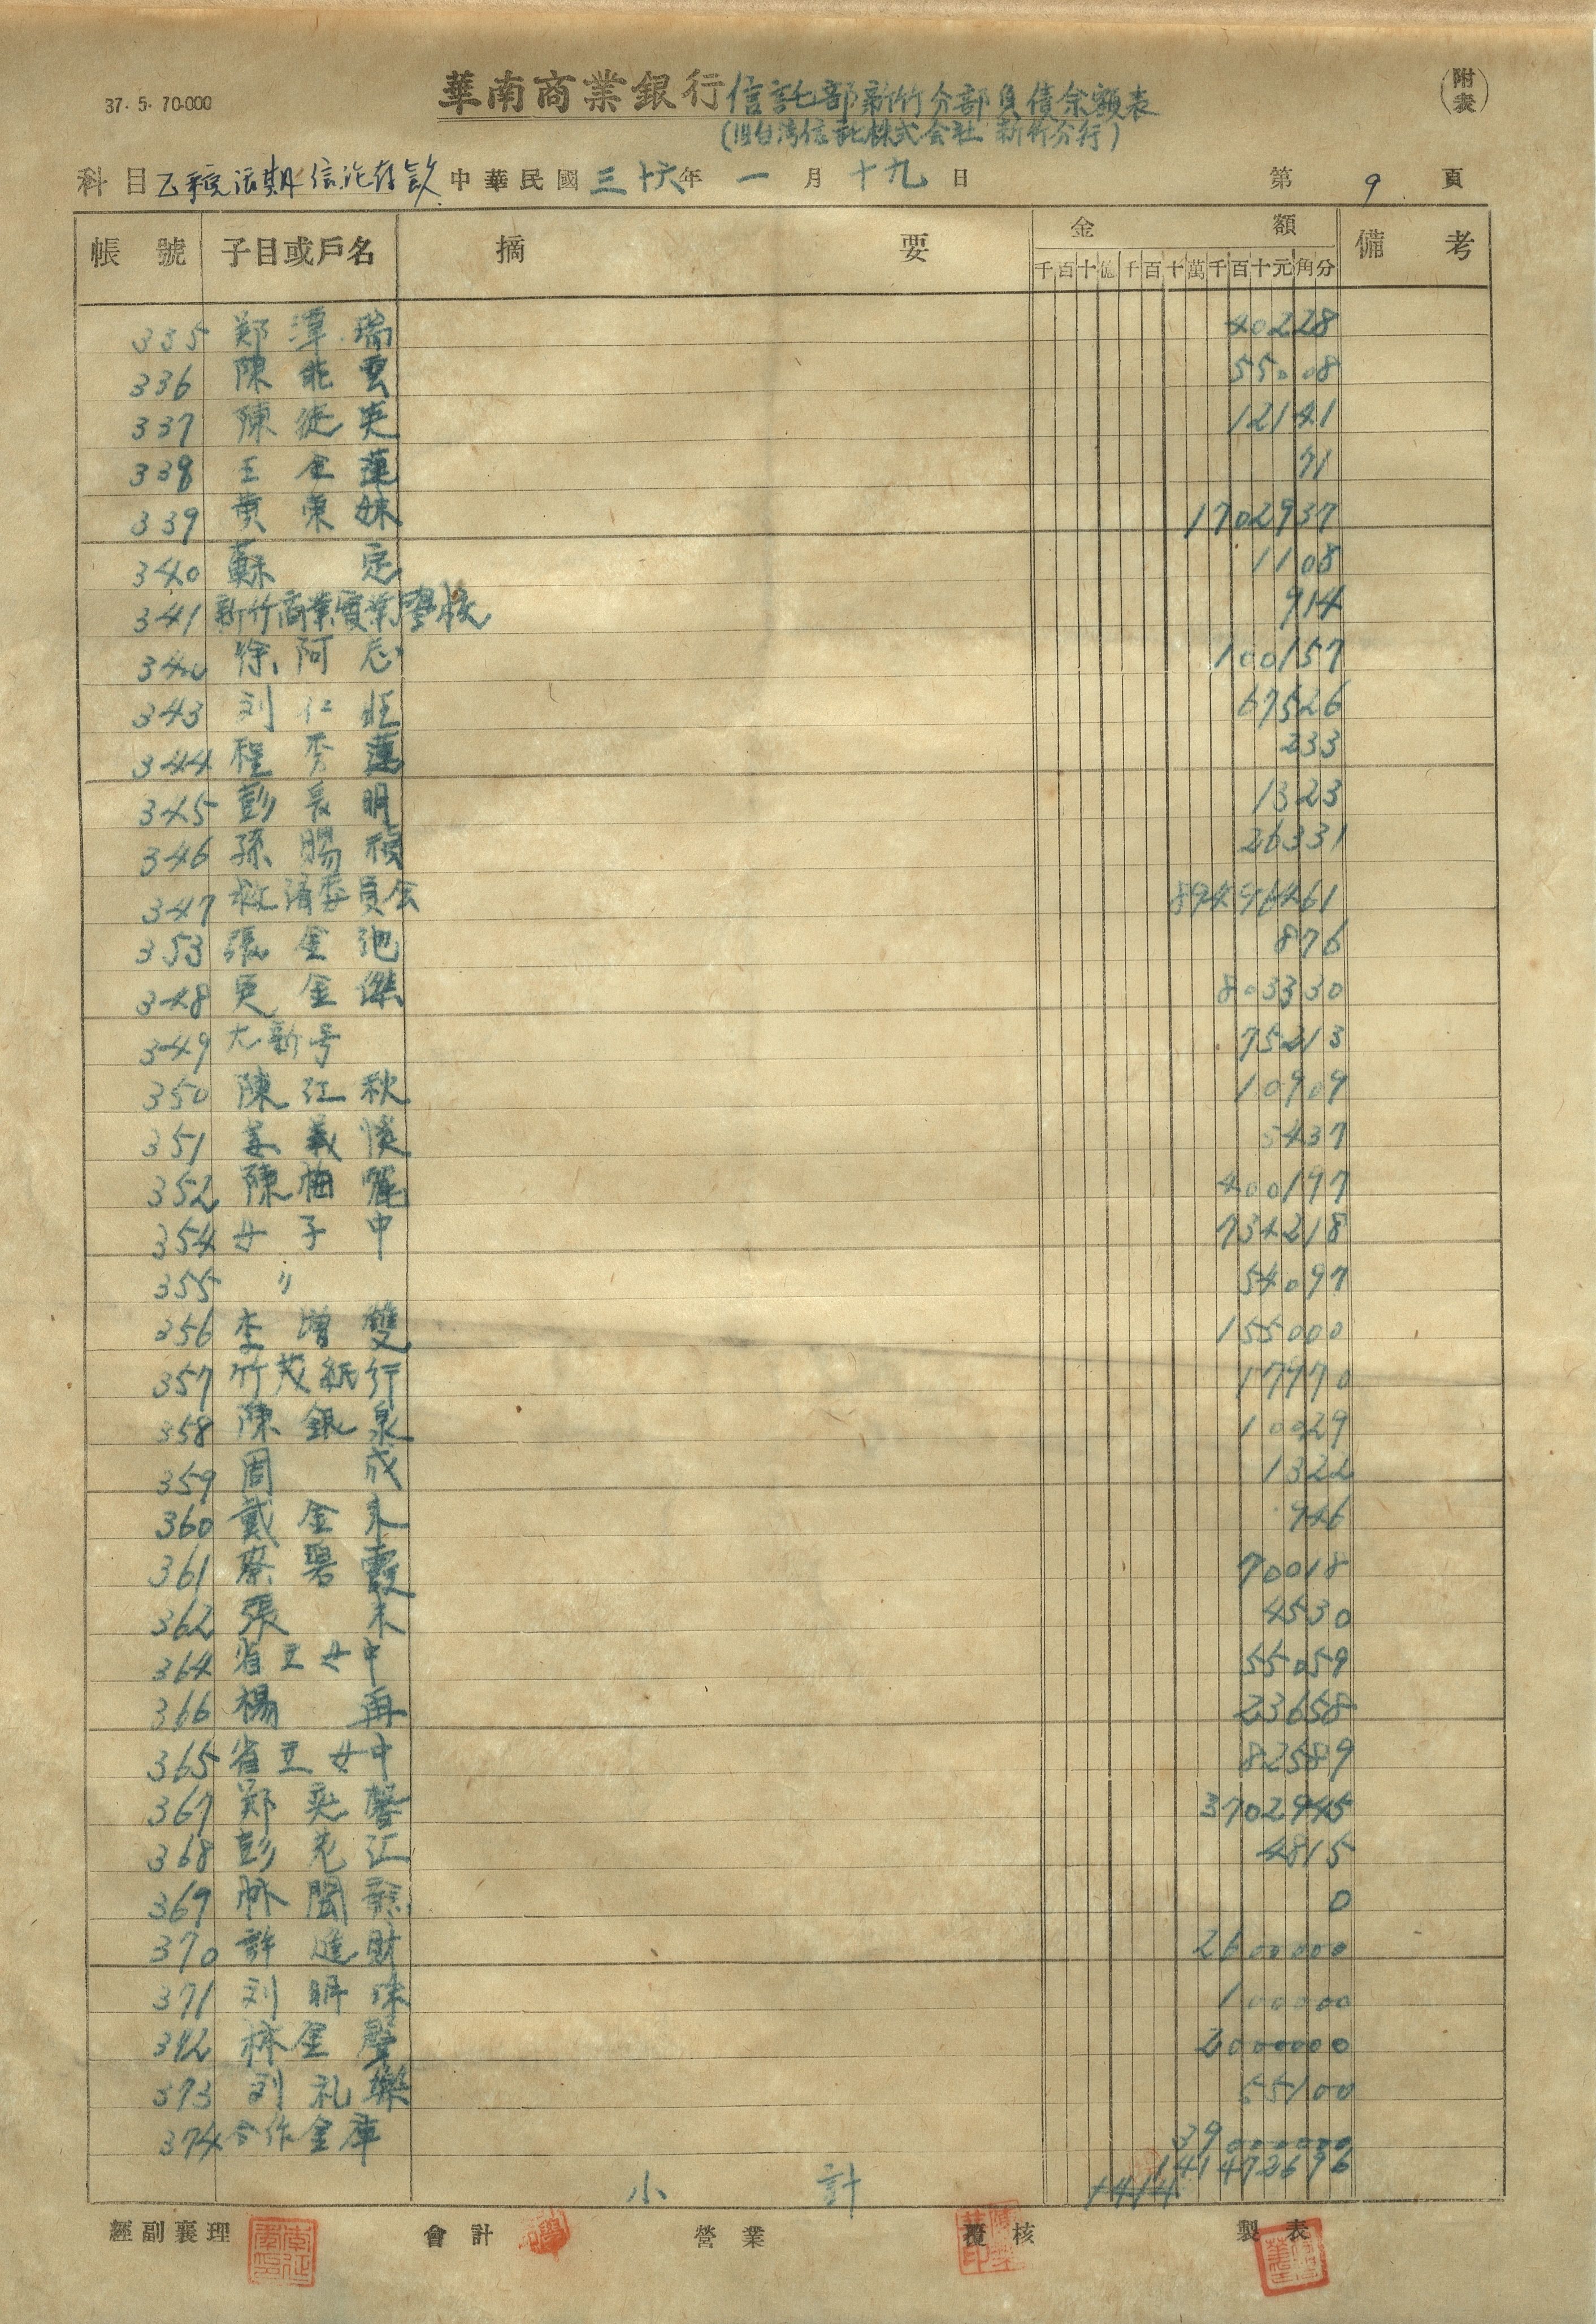 37. 5. 70.000
華南商業銀行信託部新竹分部負債余額表
(附表)
(旧台湾信託株式会社 新竹分行)
科目 乙種活期信託存款 中華民國 三十六年 一 月 十九 日 第 9 頁
帳號 子目或戶名 摘要 金額 備考
千百十億千百十萬千百十元角分
335 郑潭瑞 40228
336 陳能雲 55008
337 陳徙英 12141
338 王金蓮 71
339 黄東妹 1702937
340 蘇定 1108
341 新竹商業實業學校 914
342 徐阿忿 100157
343 刘仁旺 67526
344 程秀蓮 233
345 彭長明 1323
346 孫賜禎 26331
347 救濟委員会 89496461
353 張金池 876
348 吴金傑 803330
349 大新号 75213
350 陳江秋 10909
351 姜義 5437
352 陳梅麗 400197
354 女子中 734218
355 〃 54097
356 李增雙 155000
357 竹茂紙行 17970
358 陳銀泉 10029
359 周成 1322
360 戴金未 946
361 蔡碧霞 70018
362 張未 4530
364 省立女中 55059
366 楊再 23658
365 省立女中 82589
367 郑奕馨 3702945
368 彭老江 4815
369 林 0
370 許進財 2600000
371 刘明珠 100000
372 林金聲 2000000
373 刘礼樂 55100
374 合作金庫 39000000
小計 141472696
1414
經副襄理 會計 營業 覆核 製表